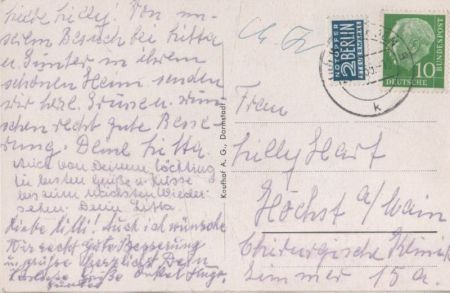 Liebe Lilly! Von un-
serem Besuch bei Jutta
u. Gunter in ihrem
schönen Heim senden
wir herzl. Grüsse u. wün-
schen recht gute Besse-
rung. Deine Jutta.
Auch von Deinem
die besten Grüße u. Küsse
bis zum nächsten Wieder-
sehen Dein
Liebe Lilli! Auch ich wünsche
Dir recht gute Besserung
u. grüße herzlichst Dein
Herzliche Grüße Onkel Hugo.
Gunter
Kaufhof A. G., Darmstadt
NOTOPFER
2 BERLIN
STEUERMARKE
DEUTSCHE
BUNDESPOST
10
k
Frau
Lilly Hart
Höchst a/Main
Chirurgische Klinik
Zimmer 15a.